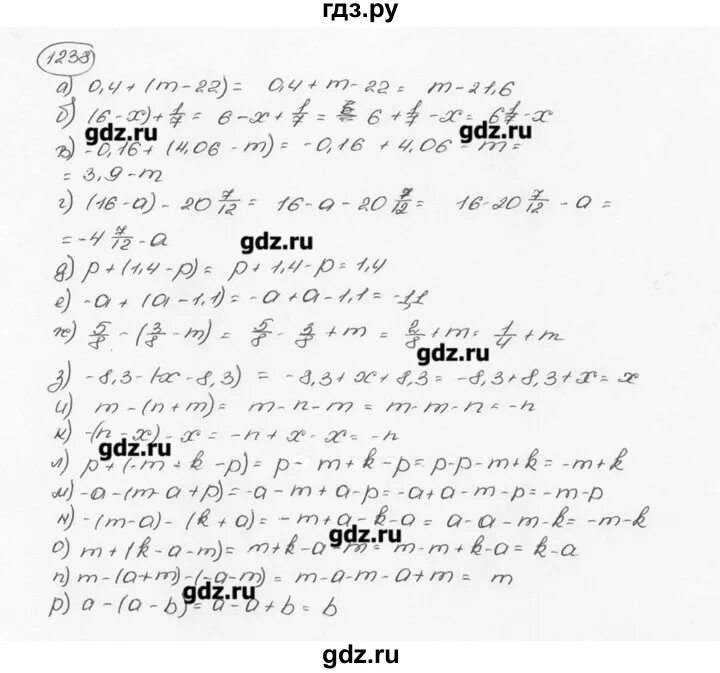 гдз.ру
1238
а) 0,4 + (m - 22) = 0,4 + m - 22 = m - 21,6
б) (6 - x) + 1/7 = 6 - x + 1/7 = 6 + 1/7 - x = 6 1/7 - x
gdz.ru gdz.ru
в) -0,16 + (4,06 - m) = -0,16 + 4,06 - m =
= 3,9 - m
г) (16 - a) - 20 7/12 = 16 - a - 20 7/12 = 16 - 20 7/12 - a =
= -4 7/12 - a
gdz.ru
д) p + (1,4 - p) = p + 1,4 - p = 1,4
е) -a + (a - 1,1) = -a + a - 1,1 = -1,1
ж) 5/8 - (3/8 - m) = 5/8 - 3/8 + m = 2/8 + m = 1/4 + m
gdz.ru
з) -8,3 - (-x - 8,3) = -8,3 + x + 8,3 = -8,3 + 8,3 + x = x
и) m - (n + m) = m - n - m = m - m - n = -n
к) -(n - x) - x = -n + x - x = -n
gdz.ru
л) p + (-m + k - p) = p - m + k - p = p - p - m + k = -m + k
м) -a - (m - a + p) = -a - m + a - p = -a + a - m - p = -m - p
н) -(m - a) - (k + a) = -m + a - k - a = a - a - m - k = -m - k
gdz.ru
о) m + (k - a - m) = m + k - a - m = m - m + k - a = k - a
п) m - (a + m) - (-a - m) = m - a - m - a + m = m
gdz.ru
р) a - (a - b) = a - a + b = b
gdz.ru